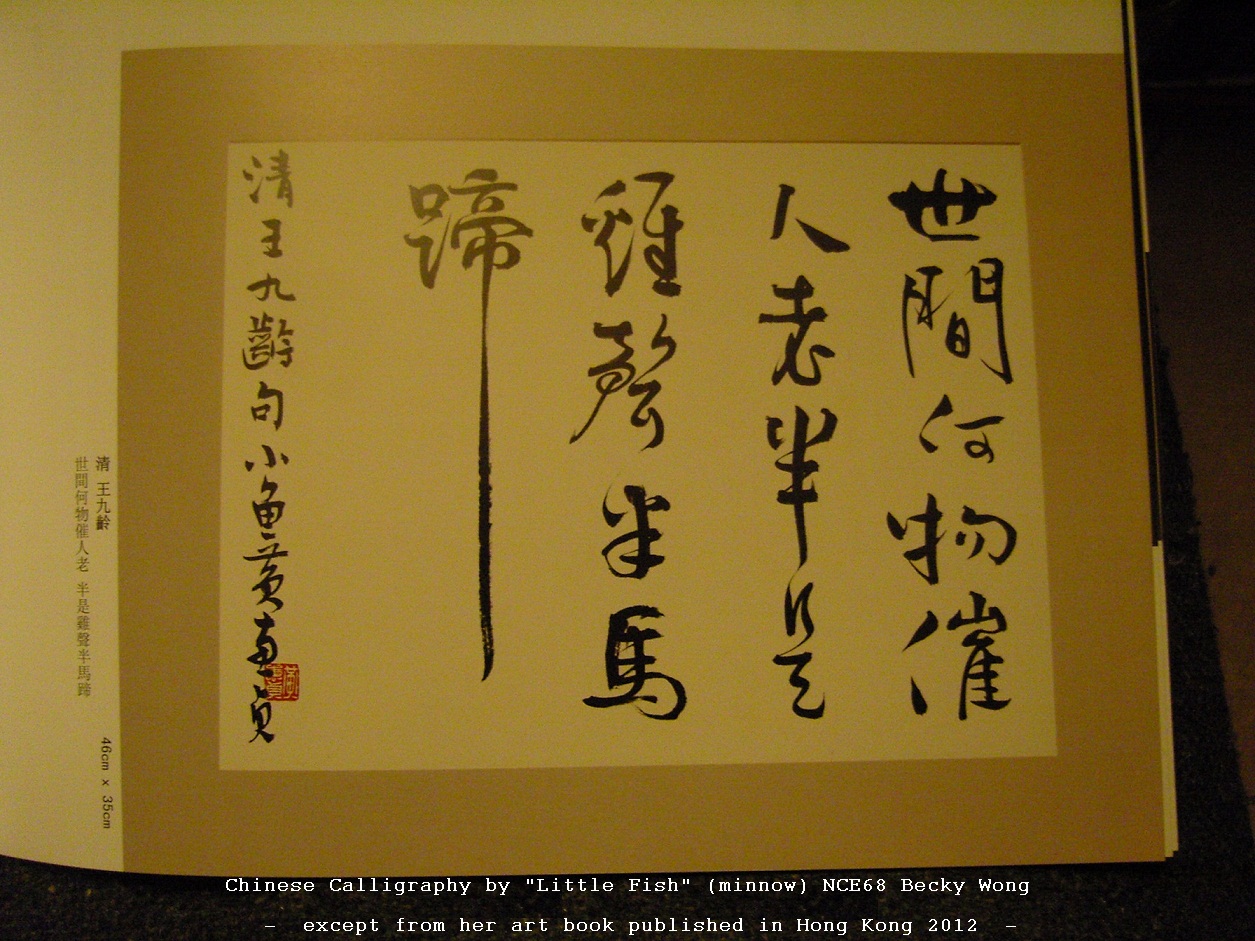 世間何物催
人老半是
雞聲半馬
蹄
清王九齡句小魚黃惠貞
清 王九齡
世間何物催人老 半是雞聲半馬蹄
46cm x 35cm
Chinese Calligraphy by "Little Fish" (minnow) NCE68 Becky Wong
– except from her art book published in Hong Kong 2012 –